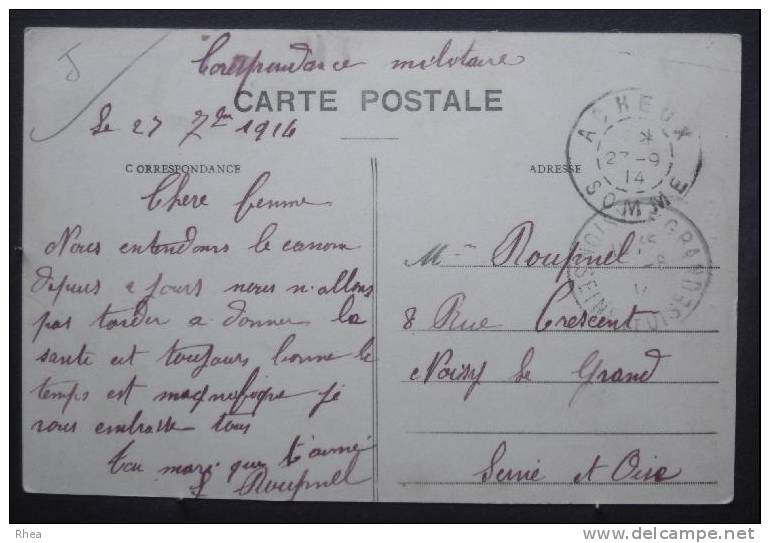 Corespondance militaire
CARTE POSTALE
Le 27 7bre 1914
CORRESPONDANCE
ADRESSE
Chere femme
Nous entendons le canon
depuis 2 jours nous n'allons
pas tarder a donner la
sante est toujours bonne le
temps est magnefique je
vous embrasse tous
ton mari qui t'aime
Roupnel
Mme Roupnel
8 Rue Crescent
Noisy le Grand
Seine et Oise
ACHEUX
27-9
14
SOMME
GRAND
SEINE
Rhea
delcampe.net